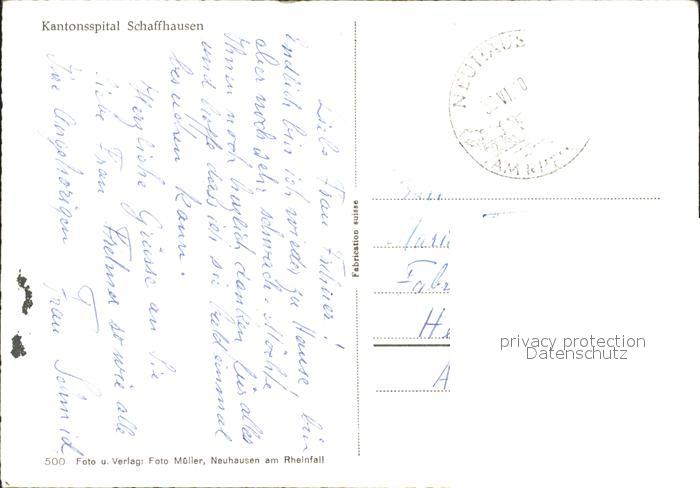 Kantonsspital Schaffhausen
Liebe Frau
Endlich bin ich wieder zu Hause, bin
aber noch sehr schwach. Möchte
Ihnen noch herzlich danken für alles
und hoffe dass ich sie bald einmal
besuchen kann.
Herzliche Grüsse an Sie
liebe Frau sowie alle
Ihre Angehörigen Frau Schmid
500 Foto u. Verlag: Foto Müller, Neuhausen am Rheinfall
Fabrication suisse
NEUHAUS
VI
AM RH
privacy protection
Datenschutz